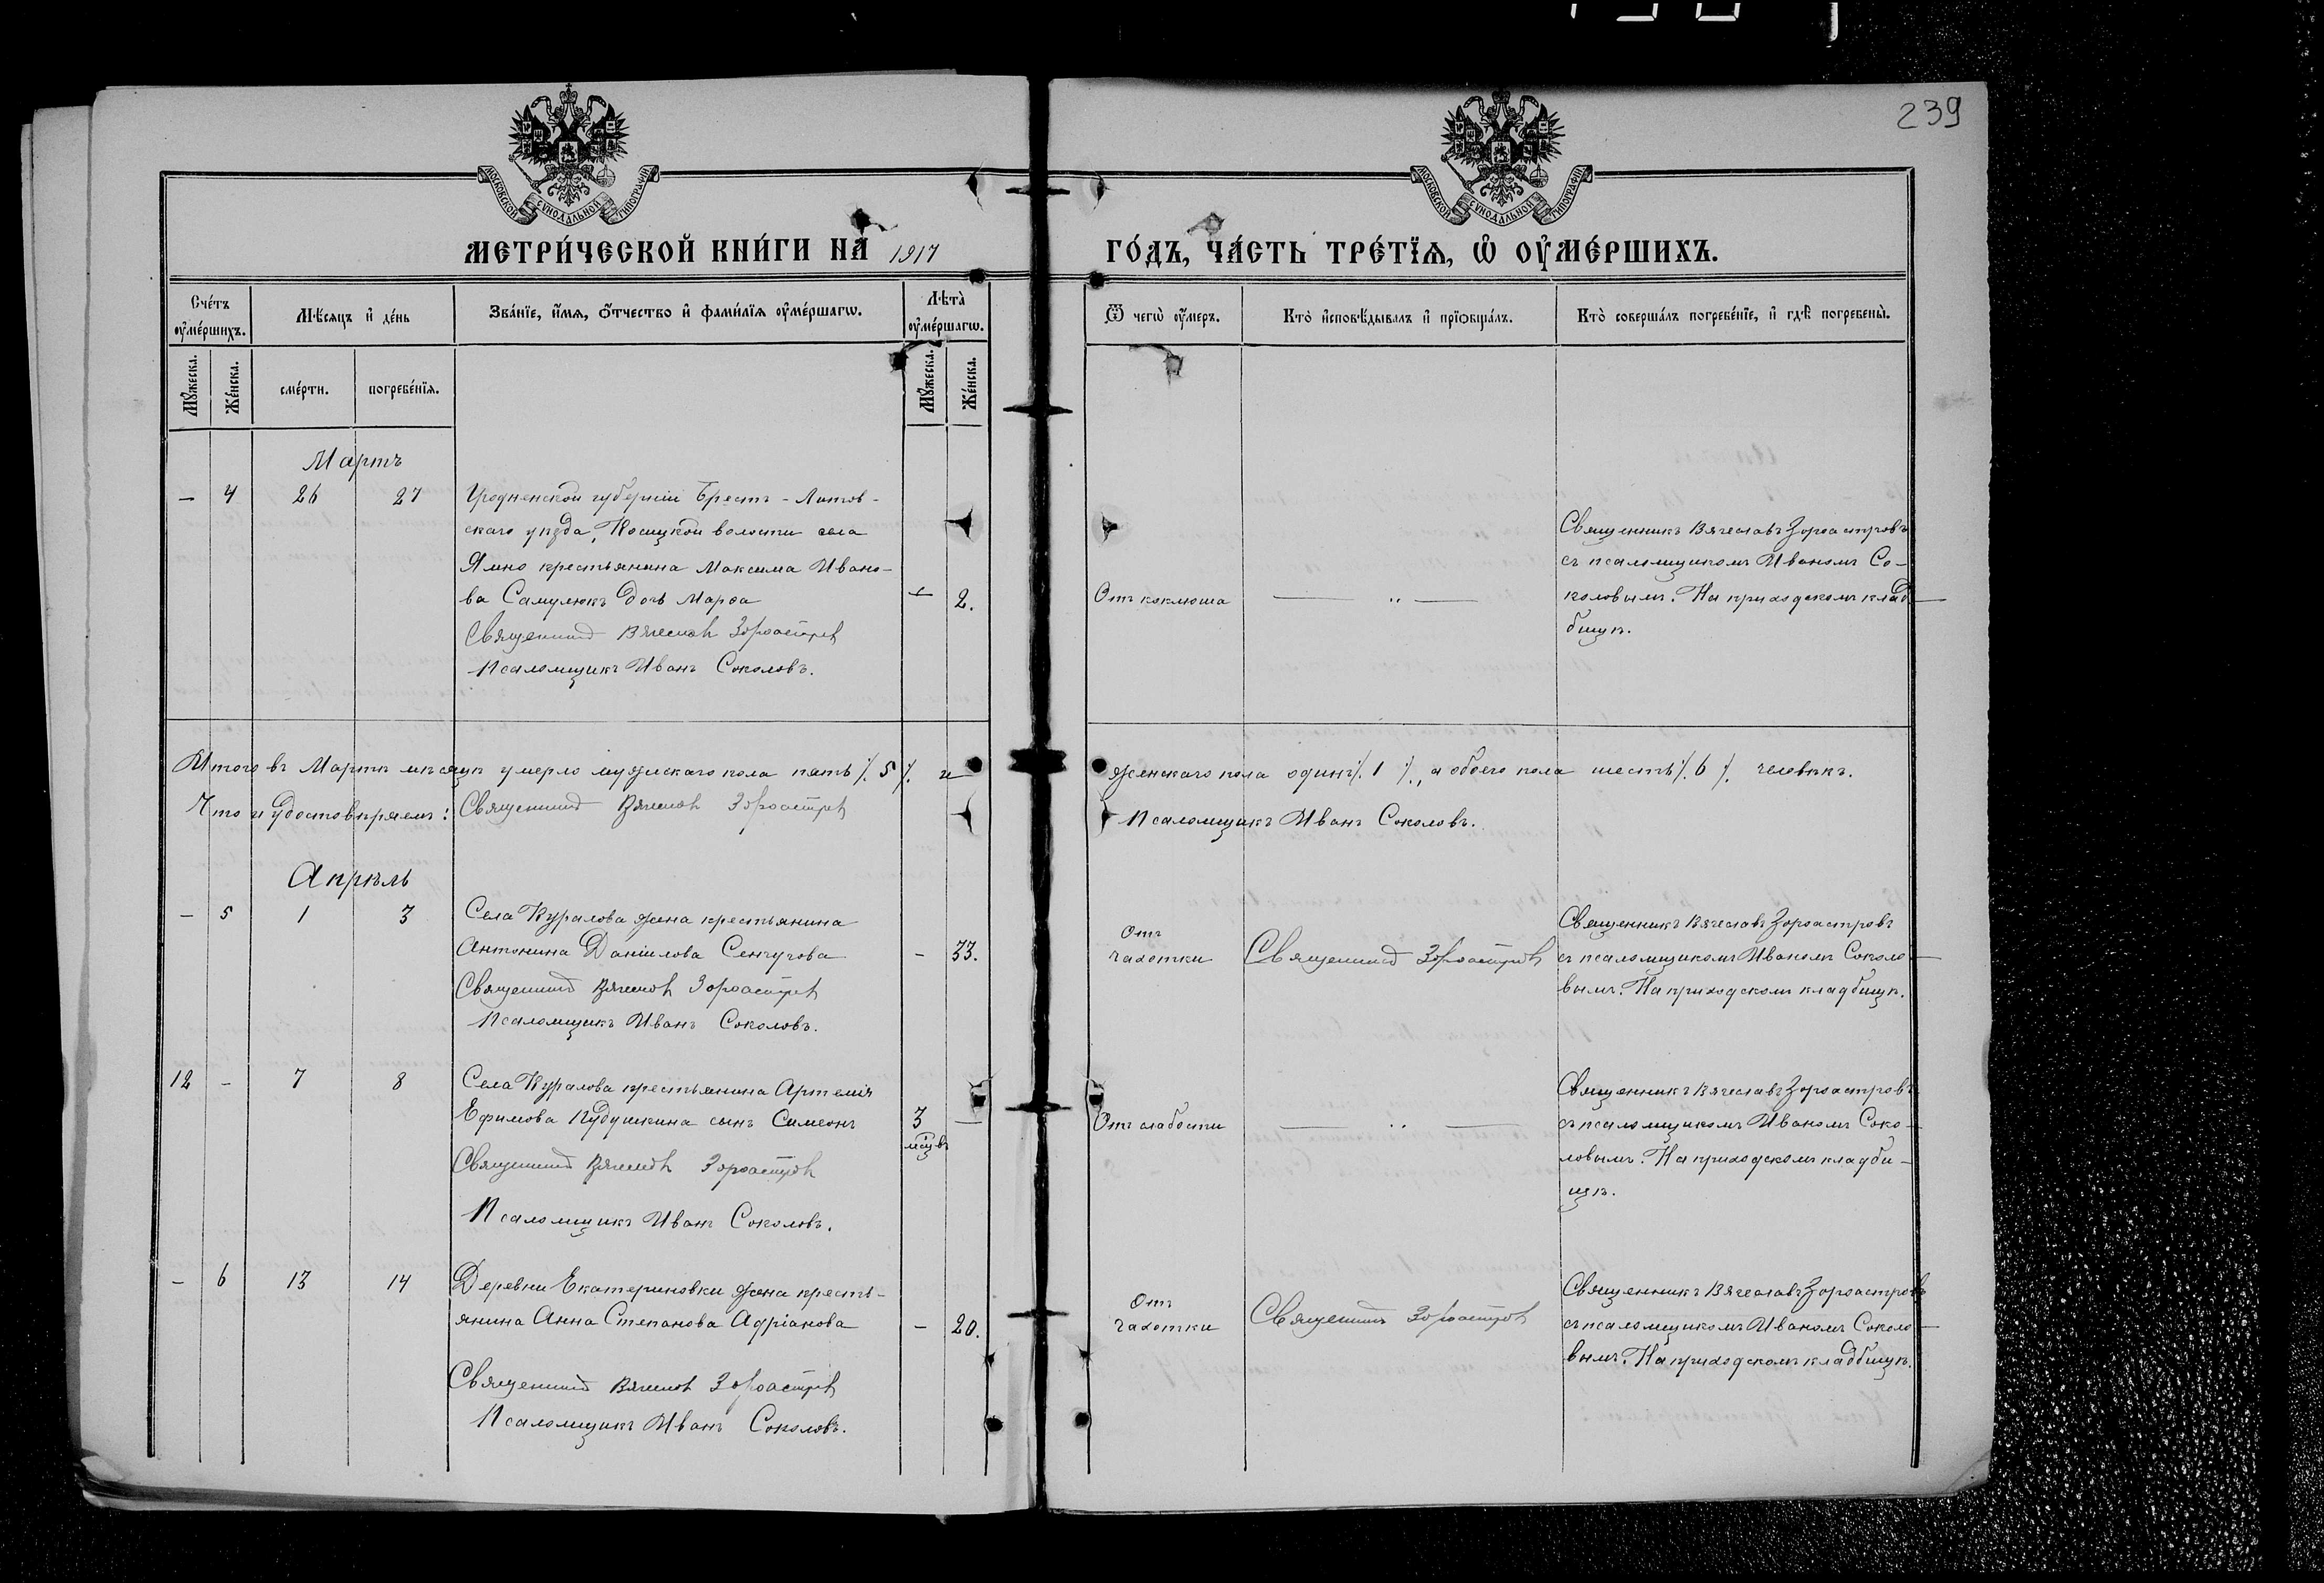 239
МОСКОВСКОЙ СУНОДАЛЬНОЙ ТИПОГРАФІИ
МОСКОВСКОЙ СУНОДАЛЬНОЙ ТИПОГРАФІИ
МЕТРИ́ЧЕСКОЙ КНИ́ГИ НА 1917 ГО́ДЪ, ЧА́СТЬ ТРЕ́ТЇѦ, Ѡ ОУМЕ́РШИХЪ.
Сче́тъ оуме́ршихъ.
Мѣ́сяцъ и де́нь
Зва́нїе, и́мѧ, о́тчество и фами́лїѧ оуме́ршагѡ.
Лѣта̀ оуме́ршагѡ.
Ѿ чегѡ̀ оу́меръ.
Кто̀ исповѣ́дывалъ и прїѡбща́лъ.
Кто̀ соверша́лъ погребе́нїе, и гдѣ̀ погребены̀.
Мꙋ́жеска.
Же́нска.
сме́рти.
погребе́нїѧ.
Мꙋ́жеска.
Же́нска.
Мартъ
— 4 26 27 Гродненской губерніи Брестъ-Литов-
скаго уѣзда, Косицкой волости села
Ямно крестьянина Максима Ивано-
ва Самулюкъ дочь Марѳа
— 2.
Священникъ Вячеславъ Зороастровъ
Псаломщикъ Иванъ Соколовъ.
Отъ коклюша
— „ —
Священникъ Вячеславъ Зороастровъ
съ псаломщикомъ Иваномъ Со-
коловымъ. На приходскомъ клад-
бищѣ.
Итого въ Мартѣ мѣсяцѣ умерло мужескаго пола пять /. 5 /. и женскаго пола одинъ /. 1 /., а обоего пола шесть /. 6 /. человѣкъ.
Что и удостовѣряемъ: Священникъ Вячеславъ Зороастровъ
Псаломщикъ Иванъ Соколовъ.
Апрѣль
— 5 1 3 Села Куралова жена крестьянина
Антонина Даніилова Сенчугова
— 33.
Священникъ Вячеславъ Зороастровъ
Псаломщикъ Иванъ Соколовъ.
Отъ
чахотки
Священникъ Зороастровъ
Священникъ Вячеславъ Зороастровъ
съ псаломщикомъ Иваномъ Соколо-
вымъ. На приходскомъ кладбищѣ.
12 — 7 8 Села Куралова крестьянина Артемія
Ефимова Кудушкина сынъ Симеонъ
3 —
мѣсяцъ
Священникъ Вячеславъ Зороастровъ
Псаломщикъ Иванъ Соколовъ.
Отъ слабости
— „ —
Священникъ Вячеславъ Зороастровъ
съ псаломщикомъ Иваномъ Соко-
ловымъ. На приходскомъ кладби-
щѣ.
— 6 13 14 Деревни Екатериновки жена кресть-
янина Анна Степанова Адріанова
— 20.
Священникъ Вячеславъ Зороастровъ
Псаломщикъ Иванъ Соколовъ.
Отъ
чахотки
Священникъ Зороастровъ
Священникъ Вячеславъ Зороастровъ
съ псаломщикомъ Иваномъ Соколо-
вымъ. На приходскомъ кладбищѣ.